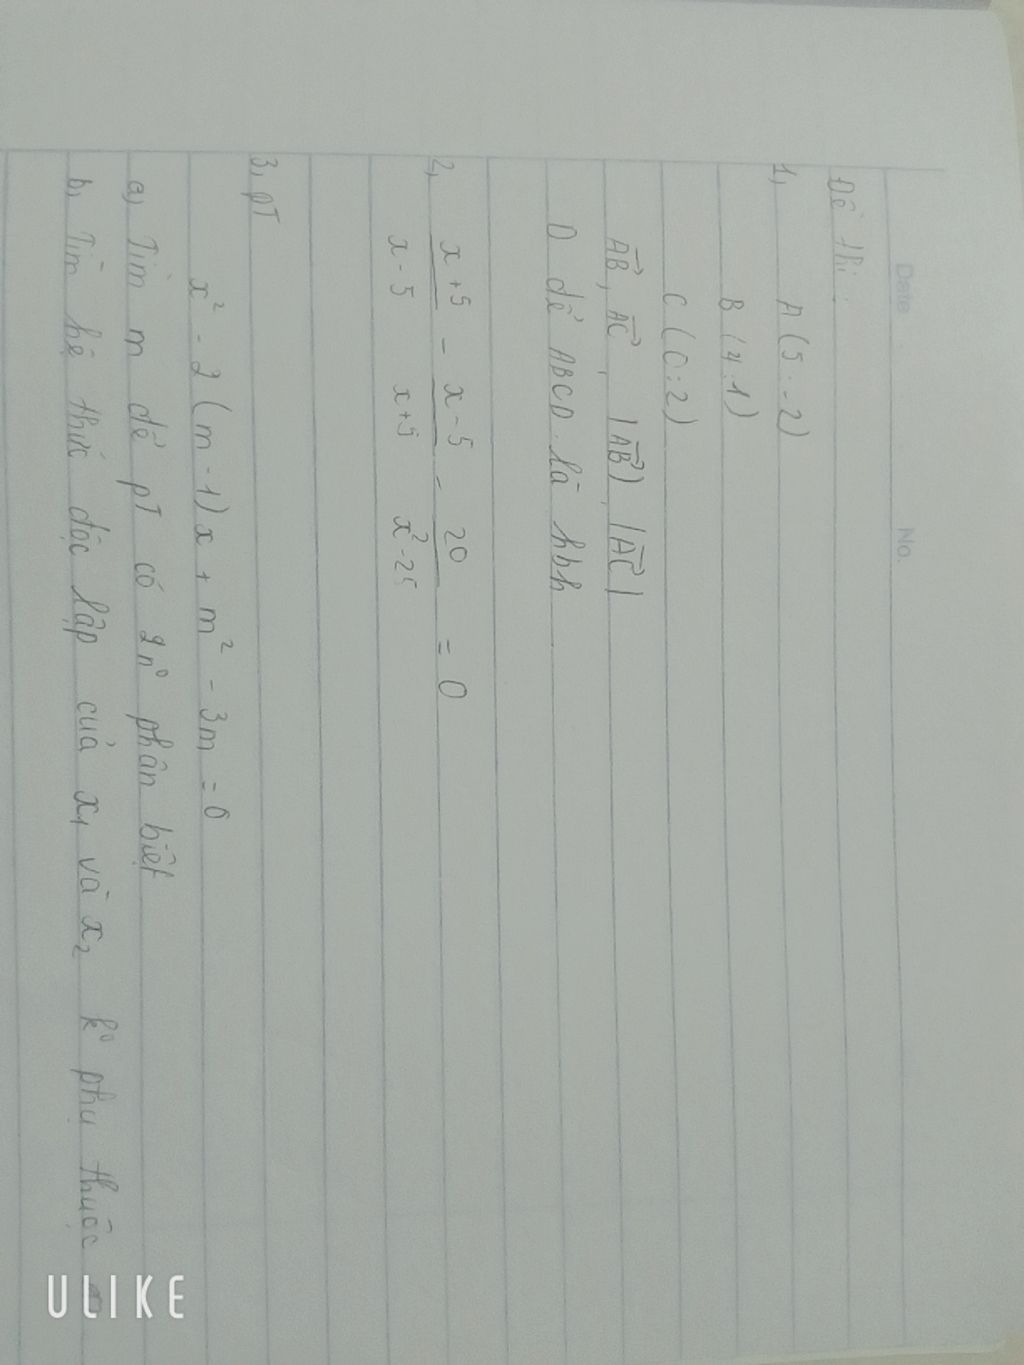 Date No.
Đề thi:
1, A (5 : -2)
B (4 : 1)
C (0 : 2)
AB, AC, |AB|, |AC|
D để ABCD là hbh
2, x+5 / x-5 - x-5 / x+5 - 20 / x²-25 = 0
3, pT
x² - 2(m-1)x + m² - 3m = 0
a, Tìm m để pT có 2n⁰ phân biệt
b, Tìm hệ thức độc lập của x₁ và x₂ k⁰ phụ thuộc m
ULIKE